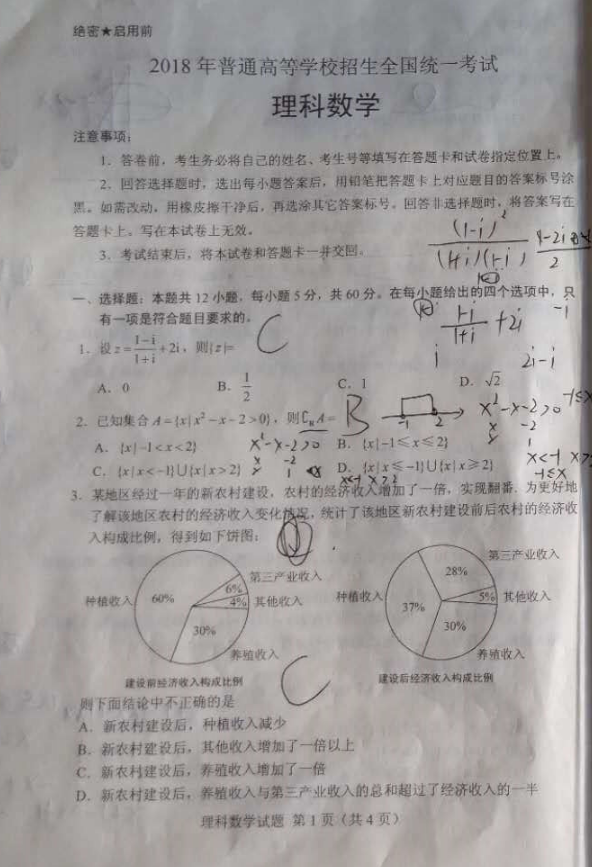 绝密★启用前
2018年普通高等学校招生全国统一考试
理科数学
注意事项:
1、答卷前,考生务必将自己的姓名、考生号等填写在答题卡和试卷指定位置上。
2、回答选择题时,选出每小题答案后,用铅笔把答题卡上对应题目的答案标号涂
黑。如需改动,用橡皮擦干净后,再选涂其它答案标号。回答非选择题时,将答案写在
答题卡上。写在本试卷上无效。
3、考试结束后,将本试卷和答题卡一并交回。
(1-i)²
(1+i)(1-i)
2
一、选择题:本题共12小题,每小题5分,共60分。在每小题给出的四个选项中,只
有一项是符合题目要求的。
1-i/1+i +2i
-i
1. 设z=1-i/1+i+2i,则|z|= C
i 2i-i
A. 0 B. 1/2 C. 1 D. √2
2. 已知集合A={x|x²-x-2>0},则∁RA= B
-1 2
x²-x-2>0
x -2
x 1
A. {x|-1<x<2} B. {x|-1≤x≤2}
x²-x-2>0
x -2
x 1
C. {x|x<-1}∪{x|x>2} D. {x|x≤-1}∪{x|x≥2}
x<-1 x>2
-1≤x
3. 某地区经过一年的新农村建设,农村的经济收入增加了一倍,实现翻番.为更好地
了解该地区农村的经济收入变化情况,统计了该地区新农村建设前后农村的经济收
入构成比例,得到如下饼图:
种植收入 60% 第三产业收入 6% 4% 其他收入 30% 养殖收入
建设前经济收入构成比例
种植收入 37% 28% 第三产业收入 5% 其他收入 30% 养殖收入
建设后经济收入构成比例
则下面结论中不正确的是 C
A. 新农村建设后,种植收入减少
B. 新农村建设后,其他收入增加了一倍以上
C. 新农村建设后,养殖收入增加了一倍
D. 新农村建设后,养殖收入与第三产业收入的总和超过了经济收入的一半
理科数学试题 第1页(共4页)